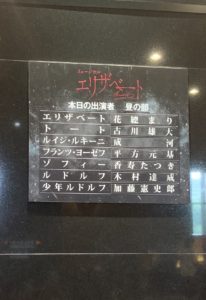 ミュージカル
エリザベート
本日の出演者 昼の部
エリザベート 花總まり
トート 古川雄大
ルイジ・ルキーニ 成河
フランツ・ヨーゼフ 平方元基
ゾフィー 香寿たつき
ルドルフ 木村達成
少年ルドルフ 加藤憲史郎